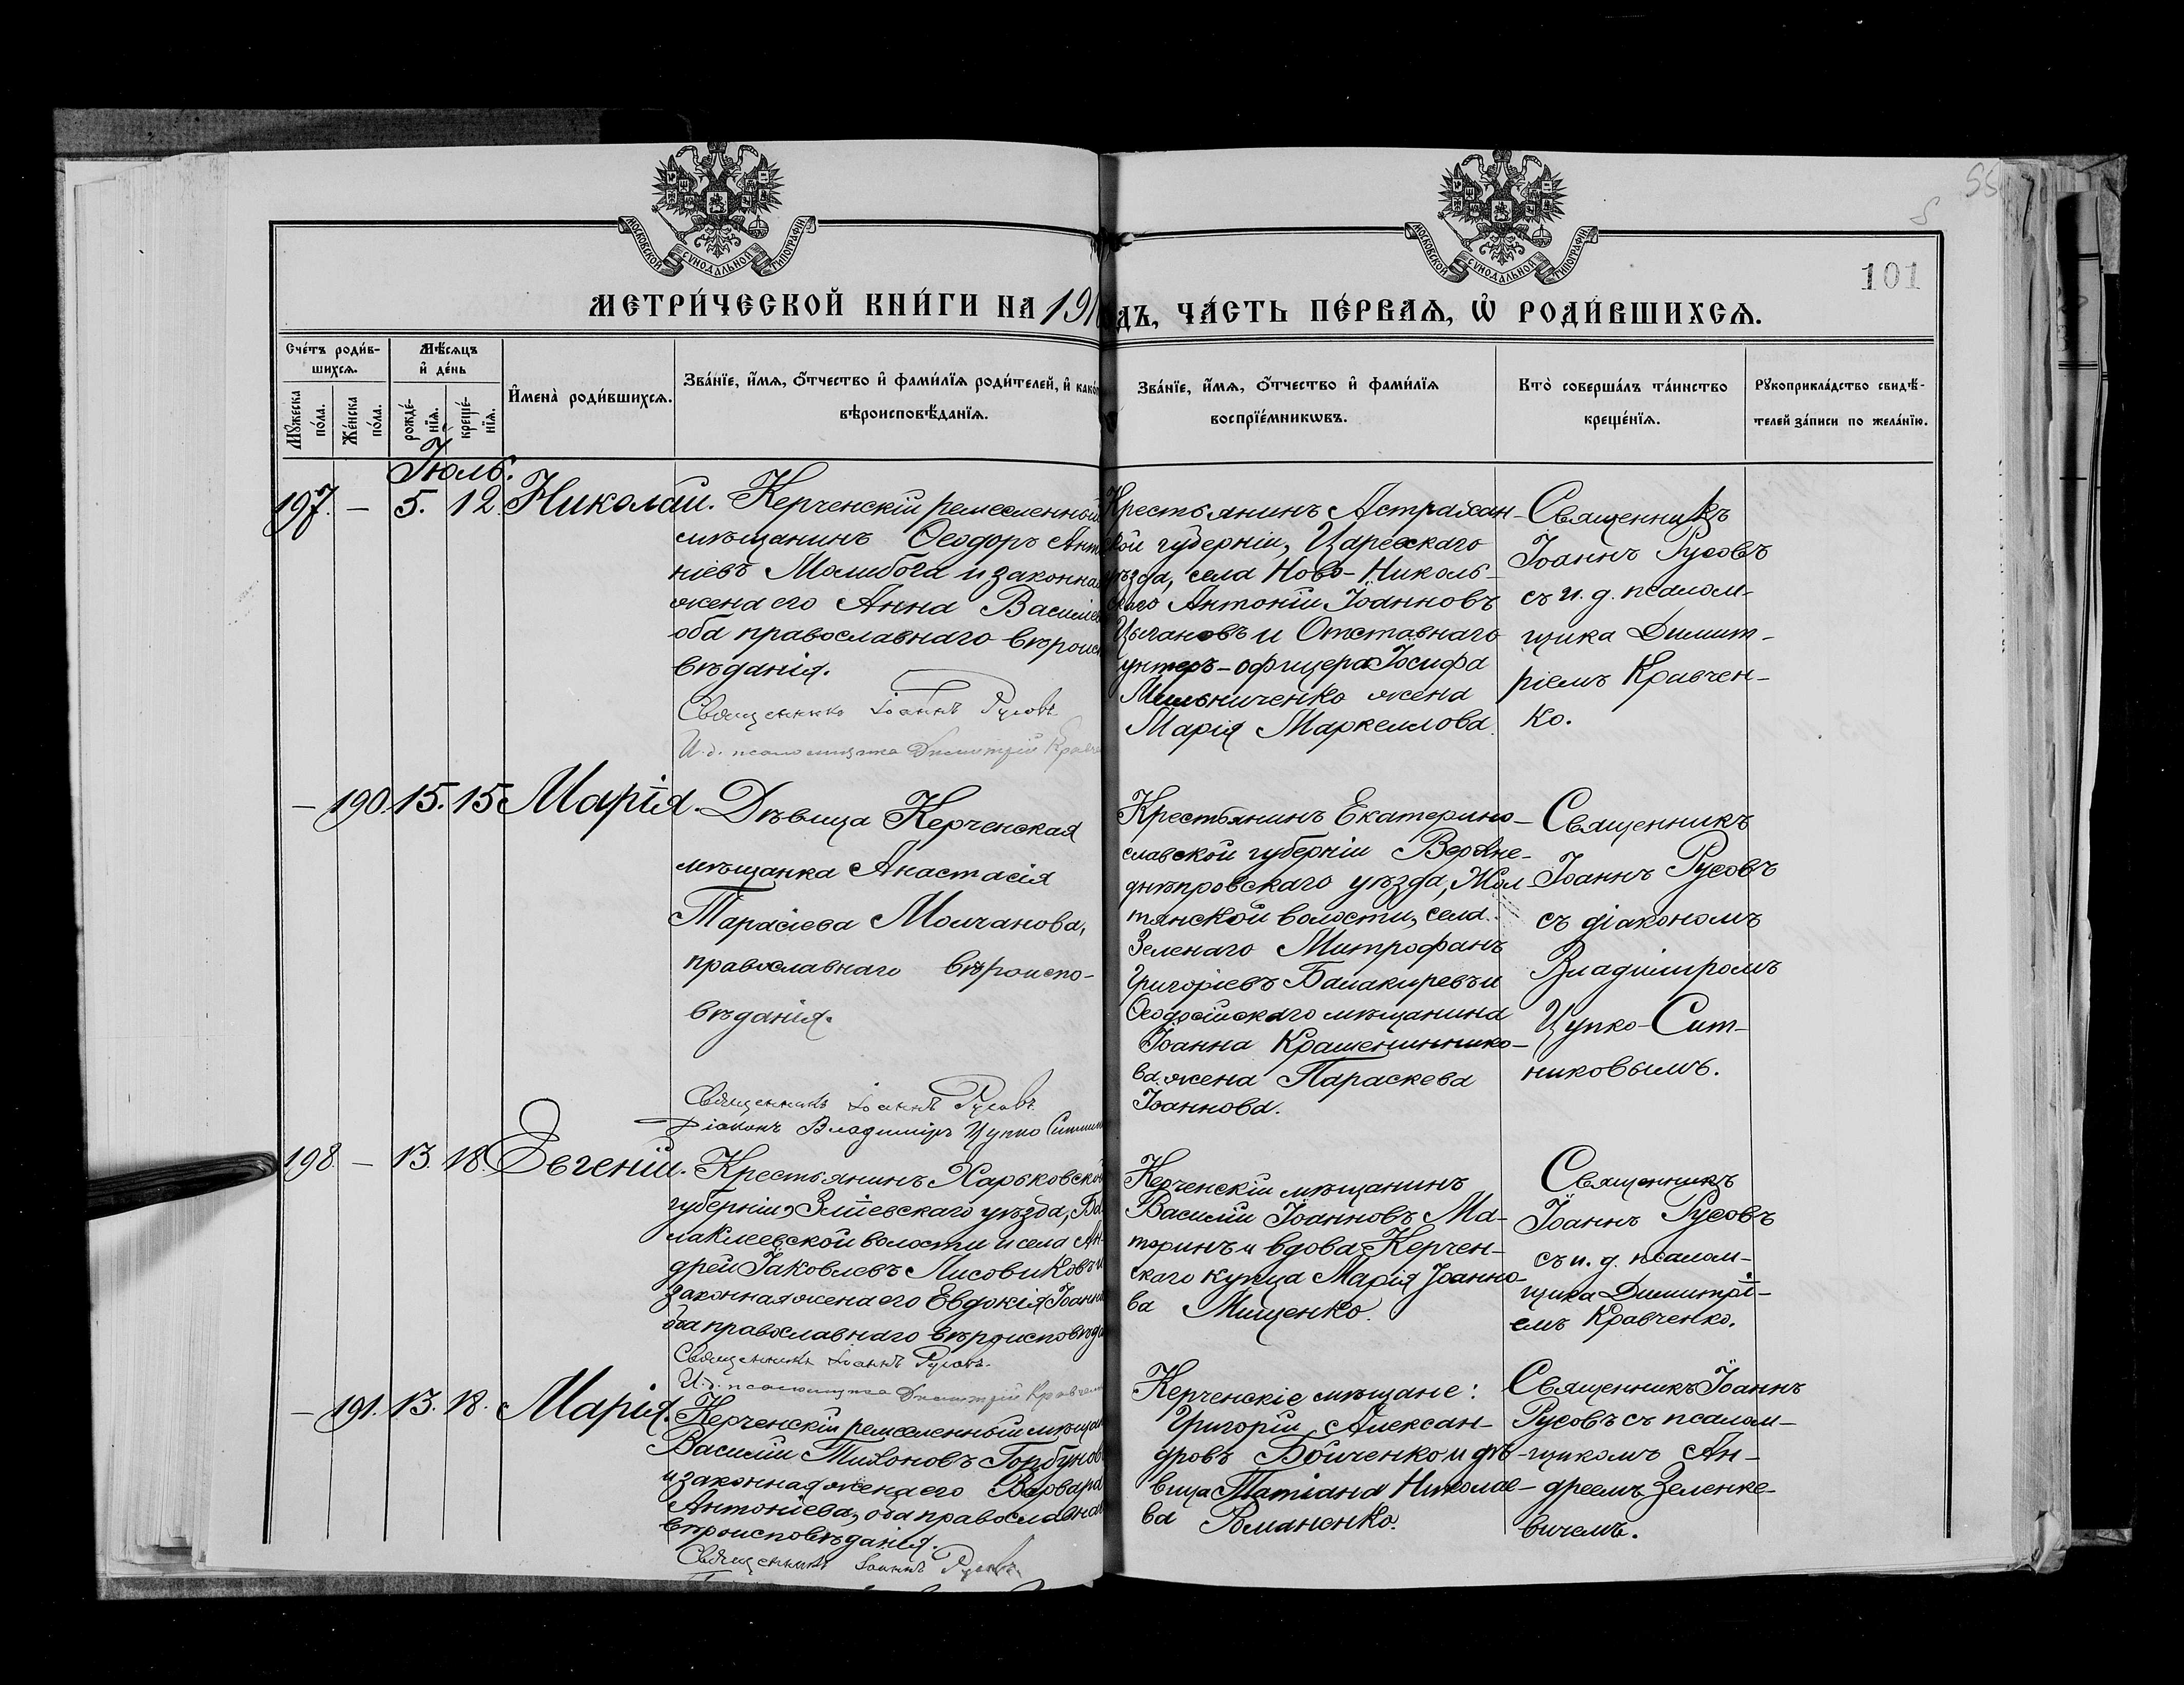 МОСКОВСКОЙ СУНОДАЛЬНОЙ ТИПОГРАФІИ
МОСКОВСКОЙ СУНОДАЛЬНОЙ ТИПОГРАФІИ
101
МЕТРИ́ЧЕСКОЙ КНИ́ГИ НА 191
ДЪ, ЧА́СТЬ ПЕ́РВАѦ, Ѡ҆ РОДИ́ВШИХСѦ.
Сче́тъ роди́в-
шихсѧ.
Мꙋ́жеска
по́ла.
Же́нска
по́ла.
Мѣ́сѧцъ
и҆ де́нь
рожде́-
нїѧ.
креще́-
нїѧ.
И҆мена̀ роди́вшихсѧ.
Зва́нїе, и҆́мѧ, ѻ҆́тчество и҆ фами́лїѧ роди́телей, и҆
вѣроисповѣ́данїѧ.
Зва́нїе, и҆́мѧ, ѻ҆́тчество и҆ фами́лїѧ
воспрїе́мникѡвъ.
Кто̀ соверша́лъ та́инство
креще́нїѧ.
Рꙋкоприкла́дство свидѣ́-
телей за́писи по жела́нїю.
Іюль.
197. — 5. 12. Николай.
Керченскій ремесленный
мѣщанинъ Ѳеодоръ Анто
ніевъ Молибога и законная
жена его Анна Василіев
оба православнаго вѣроис
вѣданія.
Священникъ Іоаннъ Русовъ
И. д. псаломщика Димитрій Кравче
Крестьянинъ Астрахан-
ской губерніи, Царевскаго
уѣзда, села Ново-Николь-
скаго Антоній Іоанновъ
Цыгановъ и Отставнаго
унтеръ-офицера Іосифа
Мельниченко жена
Марія Маркеллова.
Священникъ
Іоаннъ Русовъ
съ и. д. псалом-
щика Димит-
ріемъ Кравчен-
ко.
— 190. 15. 15 Марія.
Дѣвица Керченская
мѣщанка Анастасія
Тарасіева Молчанова,
православнаго вѣроиспо-
вѣданія.
Священникъ Іоаннъ Русовъ
Діаконъ Владимиръ Цупко Ситни
Крестьянинъ Екатерино-
славской губерніи Верхне-
днѣпровскаго уѣзда, Жол-
тянской волости, села
Зеленаго Митрофанъ
Григоріевъ Балакиревъ и
Ѳеодосійскаго мѣщанина
Іоанна Крашенинико-
ва жена Параскева
Іоаннова.
Священникъ
Іоаннъ Русовъ
съ діакономъ
Владиміромъ
Цупко-Сит-
никовымъ.
198. — 13. 18. Евгеній.
Крестьянинъ Харьковской
губерніи, Зміевскаго уѣзда, Ба
лаклеевской волости и села Ан-
дрей Іаковлевъ Лисовиковъ и
законная жена его Евдокія Іоанно
оба православнаго вѣроисповѣда
Священникъ Іоаннъ Русовъ.
И. д. псаломщика Димитрій Кравчен
Керченскій мѣщанинъ
Василій Іоанновъ Ма-
торинъ и вдова Керчен-
скаго купца Марія Іоанно-
ва Мищенко.
Священникъ
Іоаннъ Русовъ
съ и. д. псалом-
щика Димитрі-
емъ Кравченко.
— 191. 13. 18. Марія.
Керченскій ремесленный мѣщан
Василій Тихоновъ Горбунов
и законная жена его Варвара
Антоніева, оба православна
вѣроисповѣданія.
Священникъ Іоаннъ Русовъ.
Керченскіе мѣщане:
Григорій Алексан-
дровъ Бойченко и дѣ-
вица Татіана Николае-
ва Романенко.
Священникъ Іоаннъ
Русовъ съ псалом-
щикомъ Ан-
дреемъ Зеленке-
вичемъ.